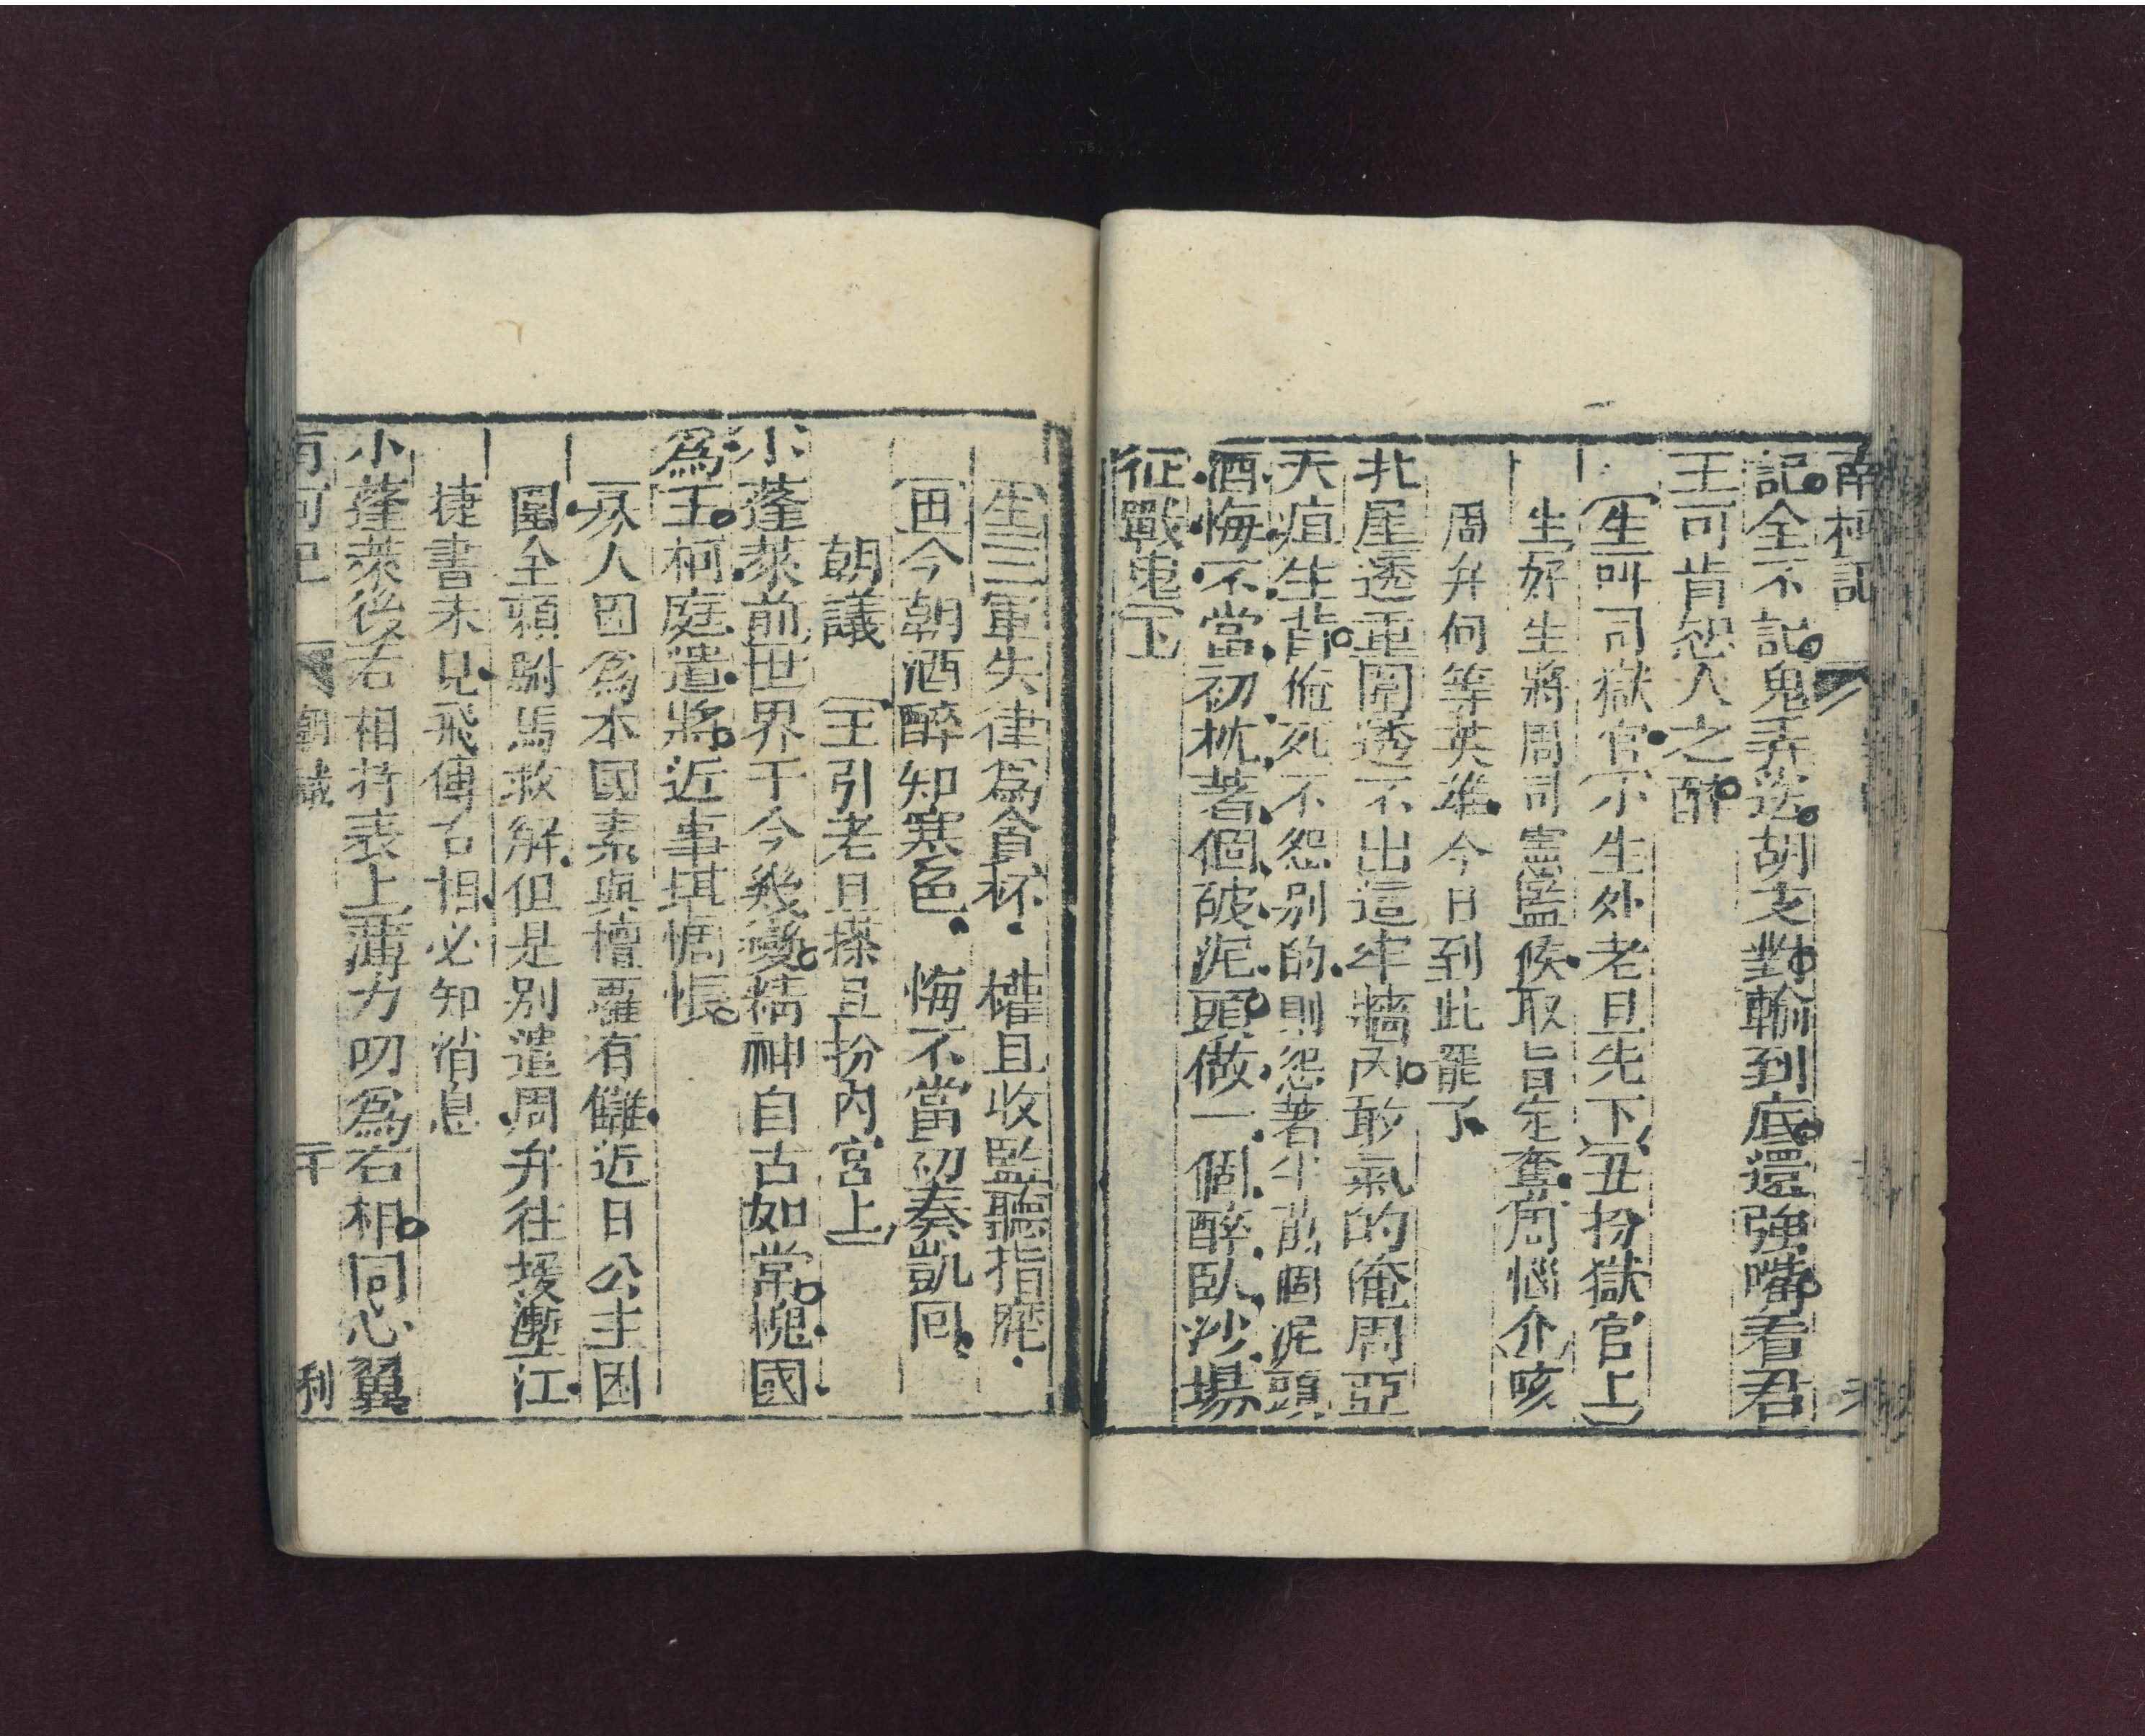 南柯記
記全不記鬼弄送胡支對輸到底還強嘴看君
王可肯恕人之醉
生叫司獄官介生外老旦先下丑扮獄官上
生好生將周司憲監候取旨定奪周惱介咳
周弁何等英雄今日到此罷了
北尾透重圍透不出這牢牆內敢氣的俺周亞
夫疽生背俺死不怨別的則怨著半散個泥頭
酒悔不當初枕著個破泥頭做一個醉臥沙場
征戰鬼下
生三軍失律爲貪杯權且收監聽指麾
田今朝酒醒知寒色悔不當初奏凱回
朝議 王引老旦搽旦扮內宮上
小蓬萊前世界于今幾變精神自古如常槐國
爲王柯庭遣將近事堪惆悵
寡人因爲本國素與檀蘿有讎近日公主困
圍全賴駙馬救解但是別遣周弁往援塹江
捷書未見飛傳右相必知消息
小蓬萊後右相持表上薄力叨爲右相同心翼
南柯記 朝議 二十 利